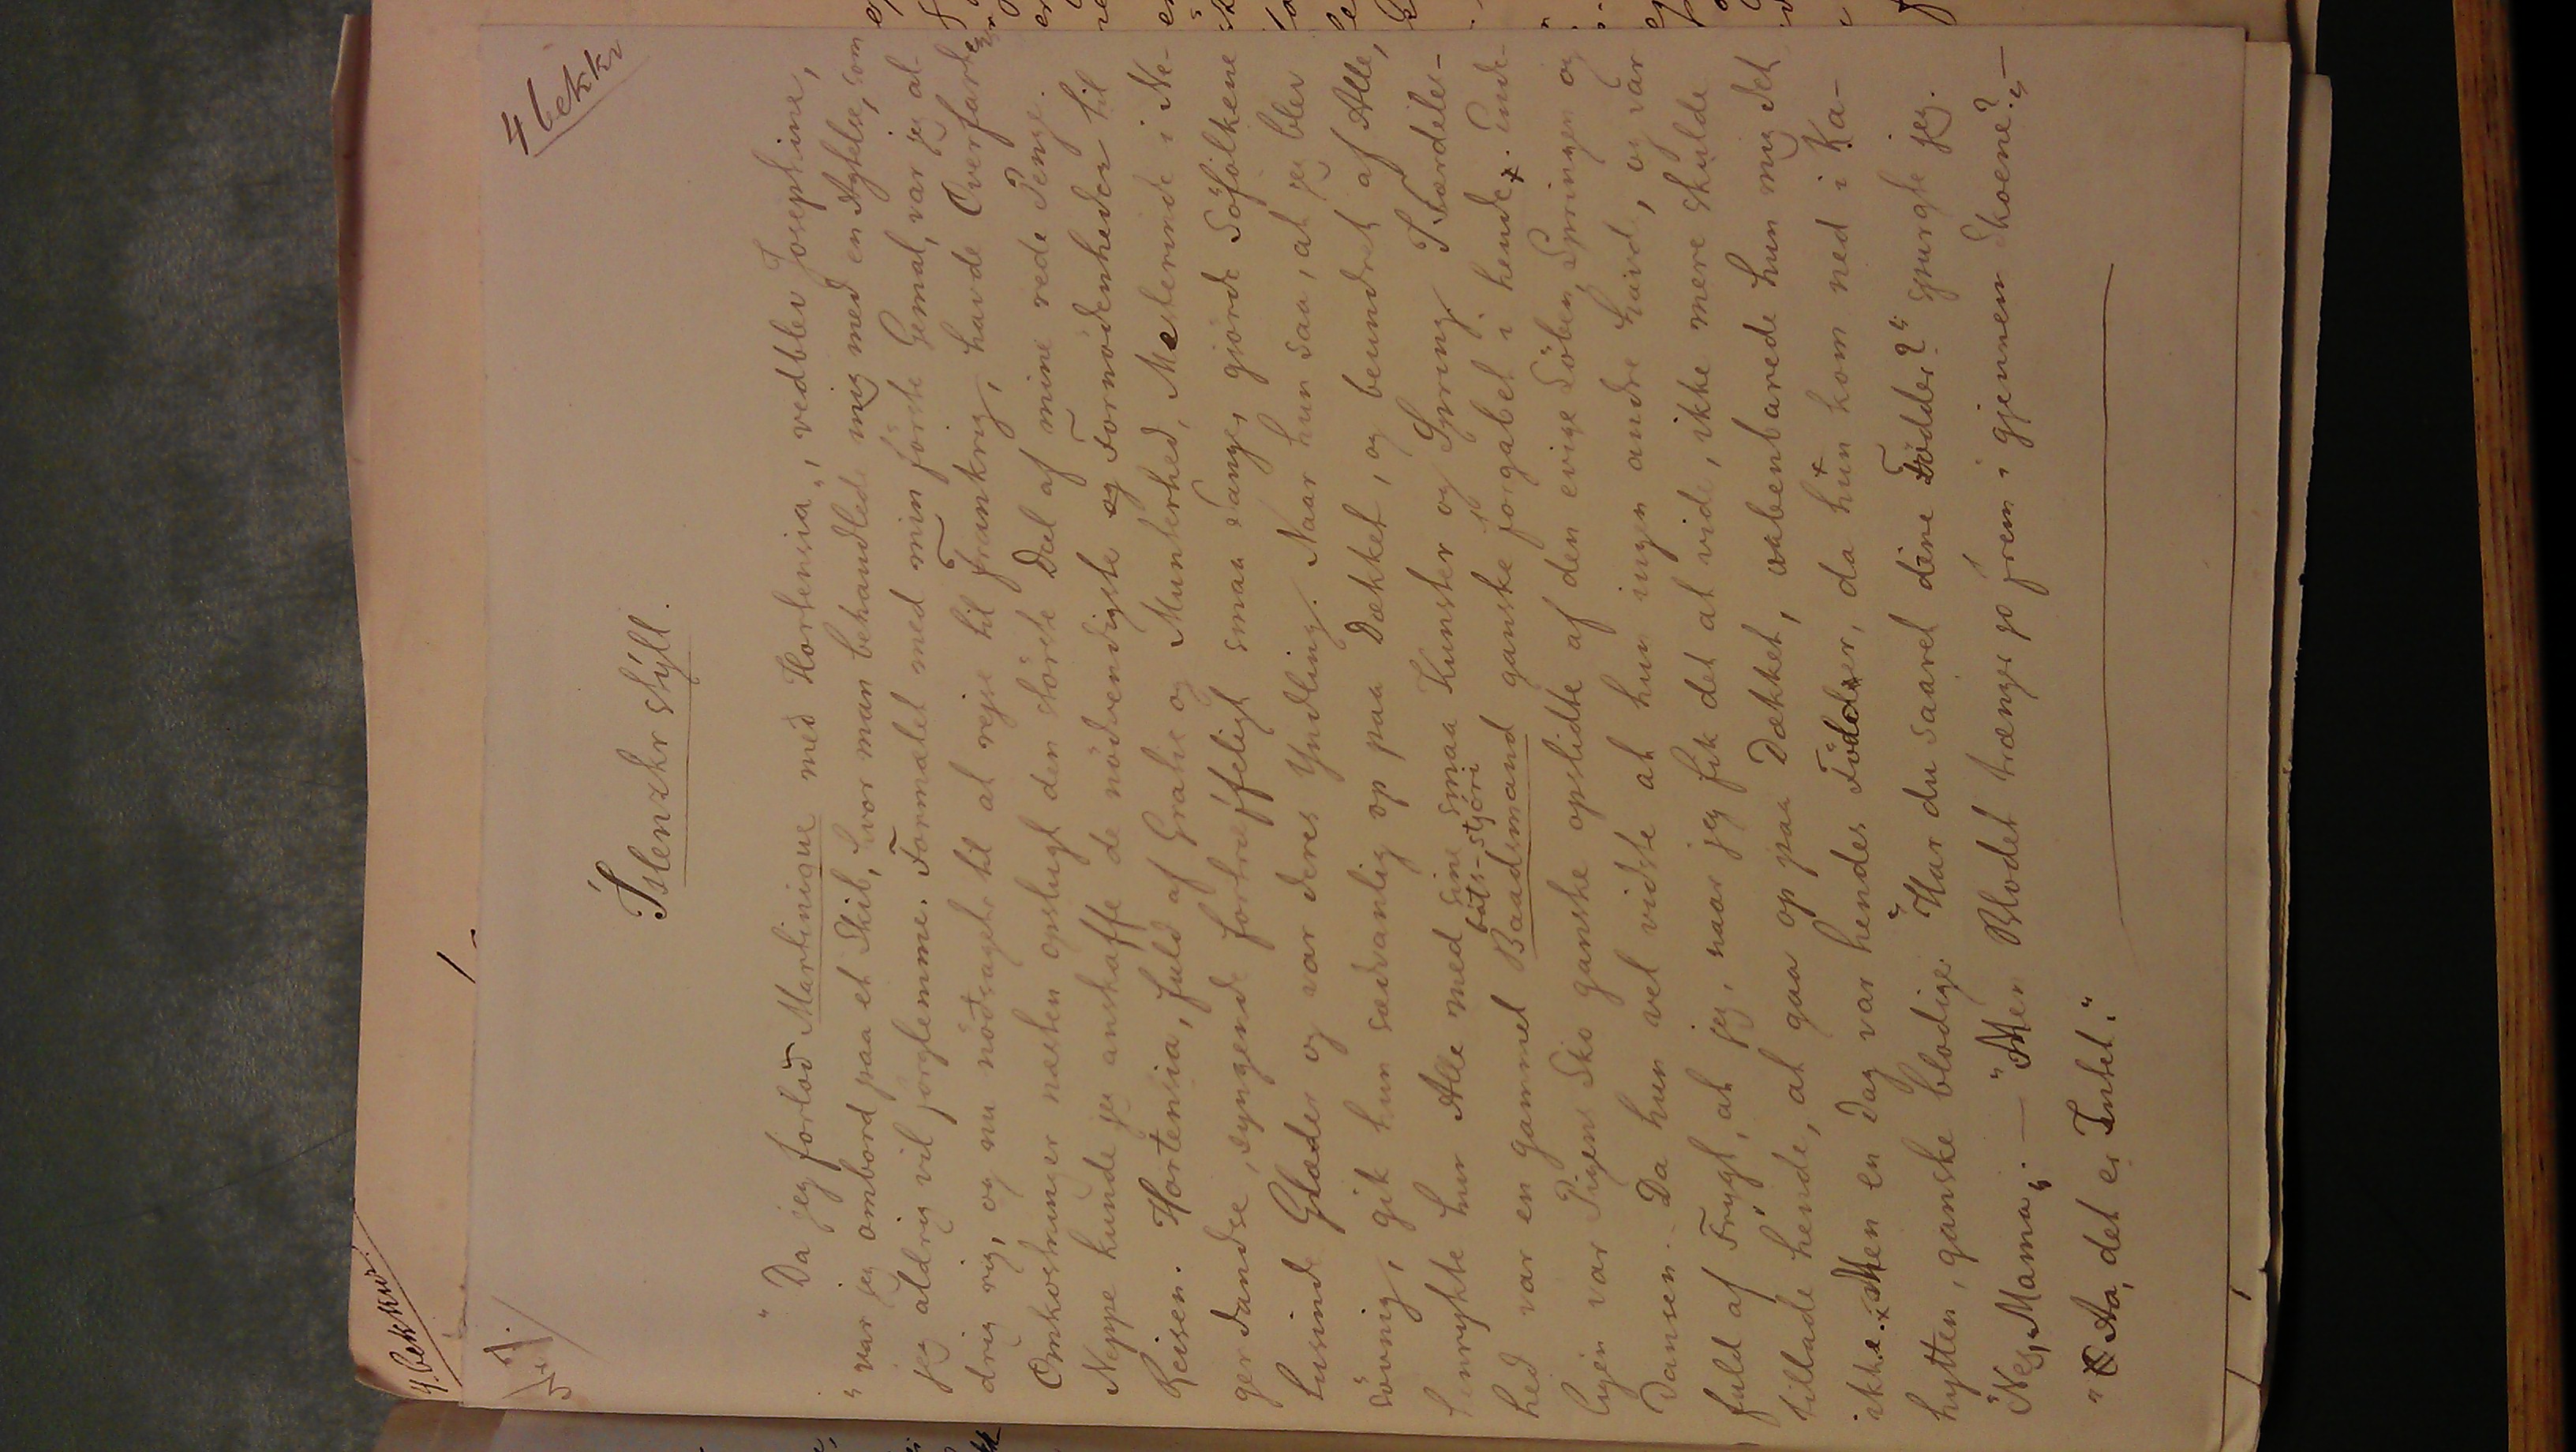 4. bekkur.
4 bekkr
Íslenzkr stýll.
„Da jeg forlod Martinique med Hortensia“, vedblev Josephine,
„var jeg ombord paa et Skib, hvor man behandlede mig med en Agtelse, som
jeg aldrig vil forglemme. Formælet med min förste Gemal, var jeg al-
drig rig, og nu nödsaget til at rejse til Frankrig, havde Overfarten
Omkostninger næsten opslugt den störste Deel af mine rede Penge.
Neppe kunde jeg anskaffe de nödvendigste og Fornödenheder til
Reisen. Hortensia, fuld af Gratie og Munterhed, Mesterinde i Ne-
gerdandse, syngende fortræffeligt smaa Sange, gjorde Söfolkene
tusinde Glæder og var deres Yndling. Naar hun saa, at jeg blev
sövnig, gik hun sædvanlig op paa Dækket, og beundret af Alle,
henrykte hun Alle med sine smaa Kunster og Spring. Isærdeles-
báts-stjóri
hed var en gammel Baadsmand ganske forgabet i hende. Ende-
ligen var Pigens Sko ganske opslidte af den evige Löben, Springen og
Dansen. Da hun vel vidste at hun ingen andre havde, og var
fuld af Frygt, at jeg, naar jeg fik det at vide, ikke mere skulde
tillade hende, at gaa op paa Dækket, aabenbarede hun mig det
ikke. Men en Dag var hendes Födder, da hun kom ned i Ka-
hytten, ganske blodige. „Har du saaret dine Födder?“ spurgte jeg.
„Nej, Mama“. — „Men Blodet trænger jo frem i gjennem Skoene?“ —
„Aa, det er Intet.“